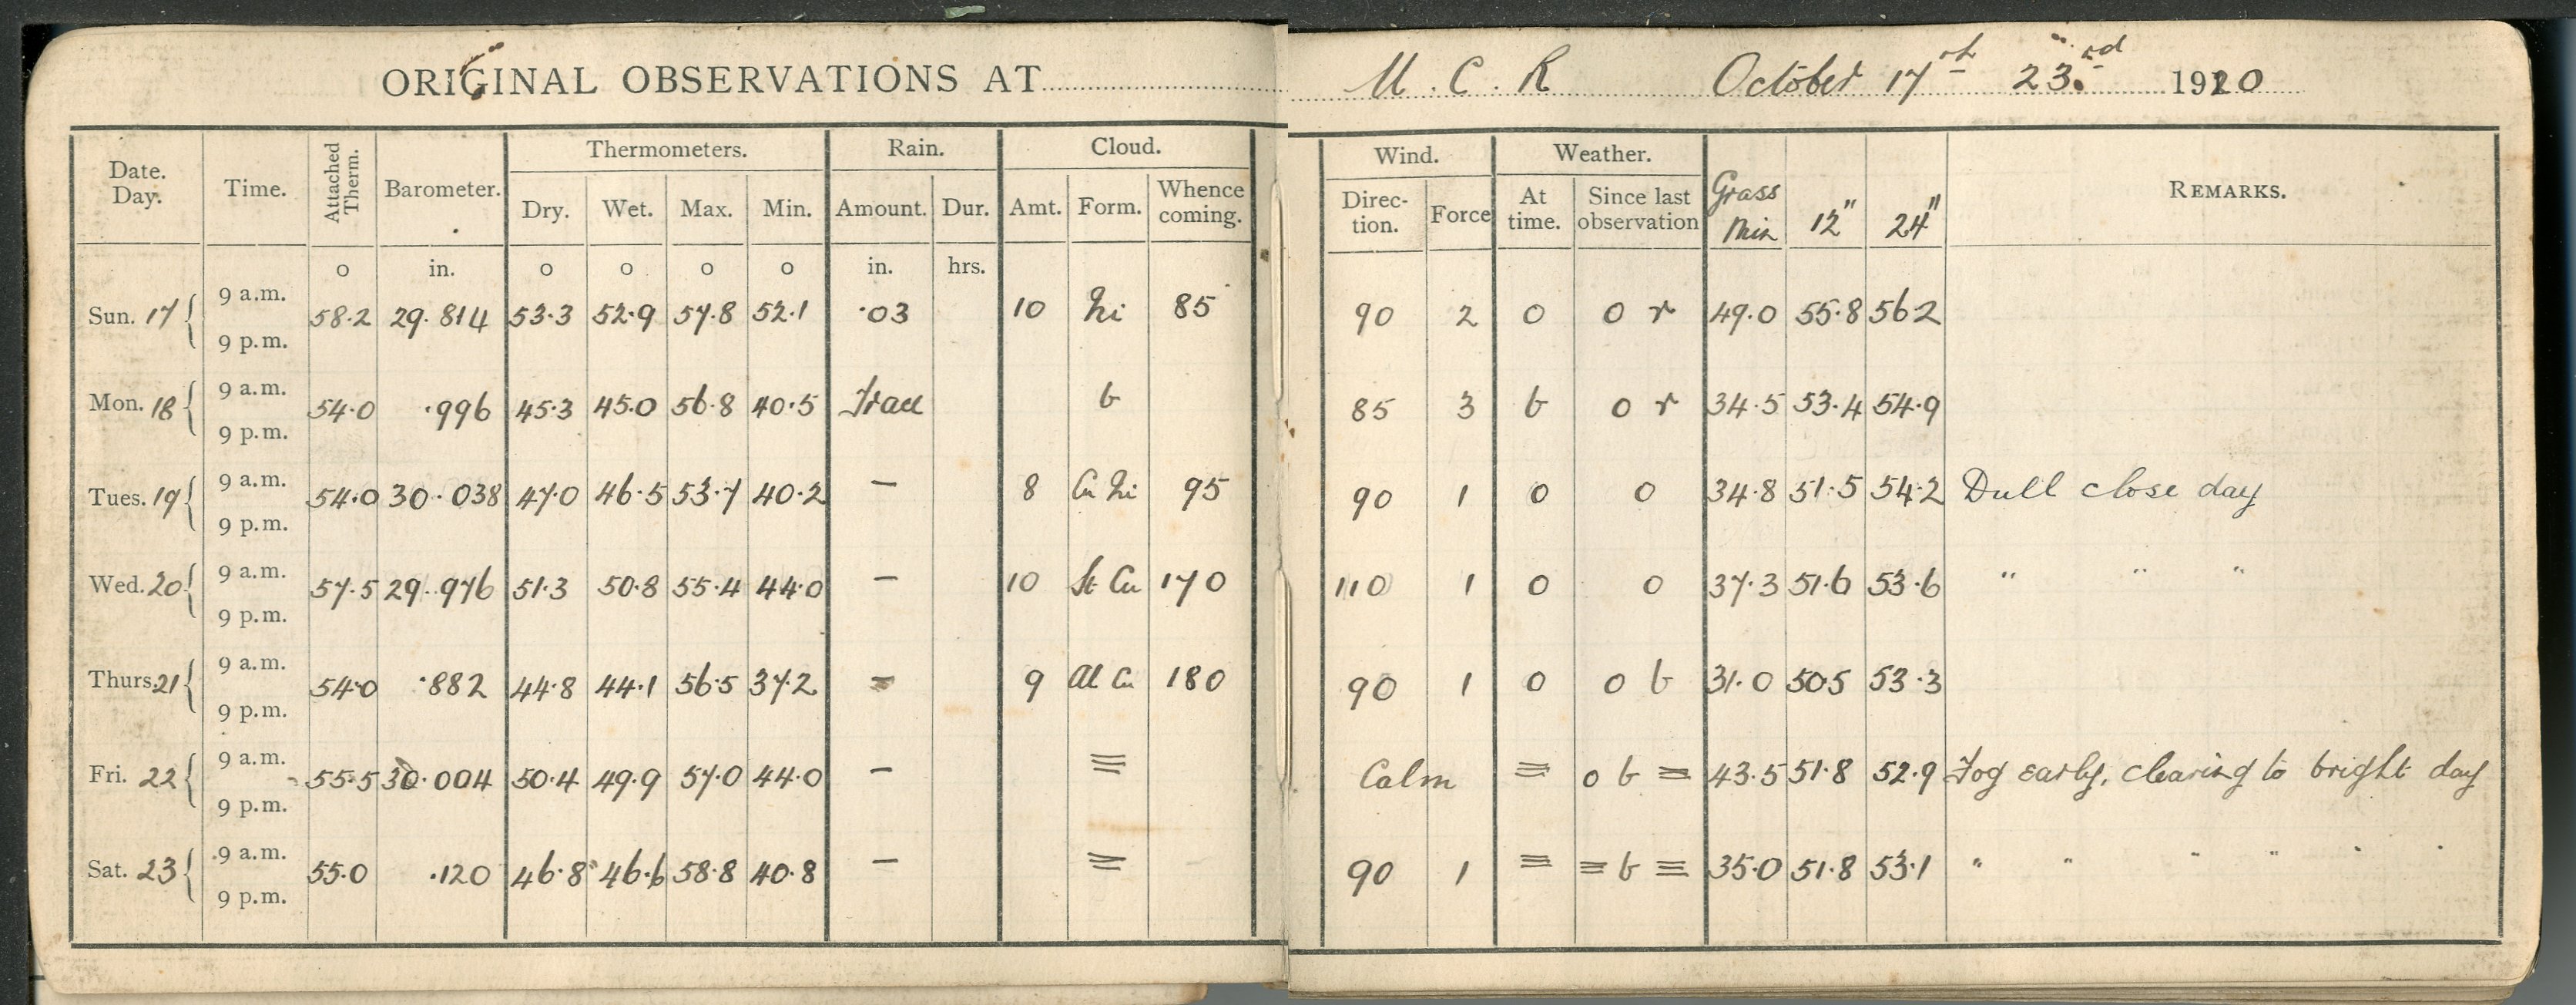 ORIGINAL OBSERVATIONS AT M. C. R October 17th 23rd 1920
Date. Day. Time. Attached Therm. Barometer. Thermometers. Rain. Cloud. Wind. Weather. Grass Min 12" 24" REMARKS.
Dry. Wet. Max. Min. Amount. Dur. Amt. Form. Whence coming. Direc- tion. Force At time. Since last observation
o in. o o o o in. hrs.
9 a.m.
Sun. 17 58.2 29.814 53.3 52.9 57.8 52.1 .03 10 Ni 85 90 2 o o r 49.0 55.8 56.2
9 p.m.
9 a.m.
Mon. 18 54.0 .996 45.3 45.0 56.8 40.5 Trace b 85 3 b o r 34.5 53.4 54.9
9 p.m.
9 a.m.
Tues. 19 54.0 30.038 47.0 46.5 53.7 40.2 — 8 Cu Ni 95 90 1 o o 34.8 51.5 54.2 Dull close day
9 p.m.
9 a.m.
Wed. 20 57.5 29.976 51.3 50.8 55.4 44.0 — 10 St Cu 170 110 1 o o 37.3 51.6 53.6 " " "
9 p.m.
9 a.m.
Thurs. 21 54.0 .882 44.8 44.1 56.5 37.2 — 9 Al Cu 180 90 1 o o b 31.0 50.5 53.3
9 p.m.
9 a.m.
Fri. 22 55.5 30.004 50.4 49.9 57.0 44.0 — ≡ Calm ≡ o b ≡ 43.5 51.8 52.9 Fog early, clearing to bright day
9 p.m.
9 a.m.
Sat. 23 55.0 .120 46.8 46.6 58.8 40.8 — ≡ 90 1 ≡ ≡ b ≡ 35.0 51.8 53.1 " " " " " "
9 p.m.